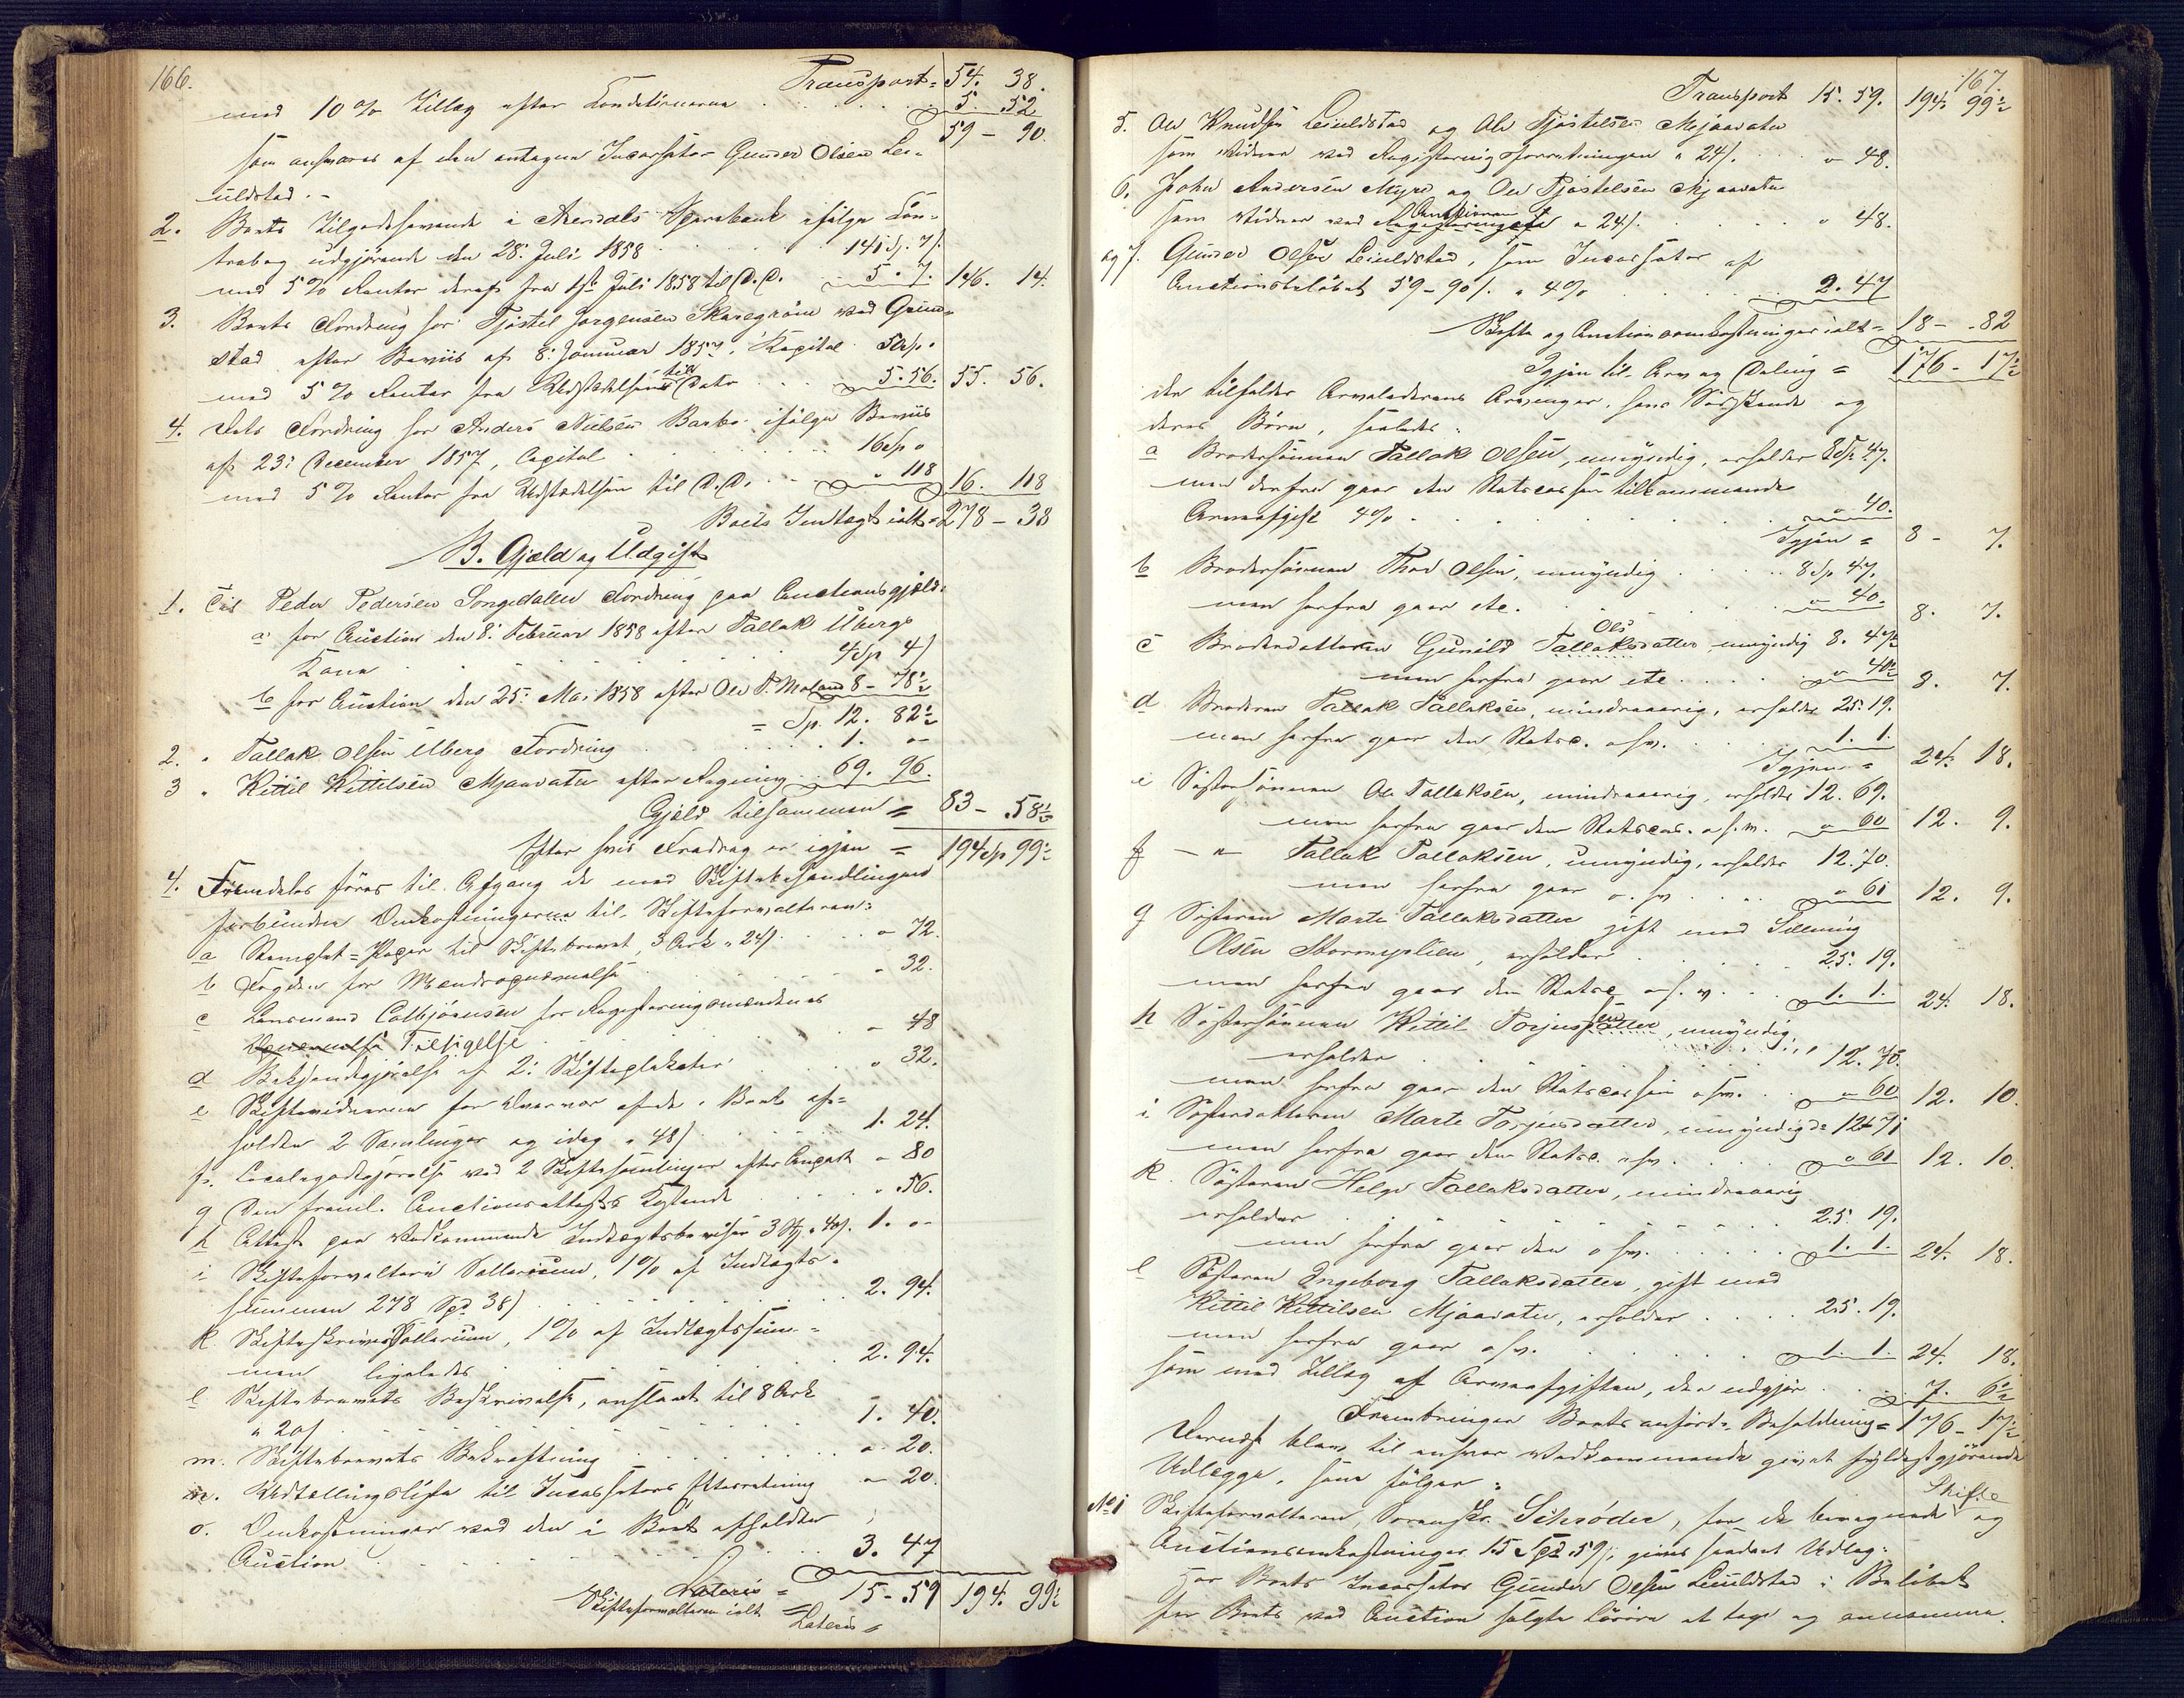 166.
Transport = 54. 38.
med 10 % Tillæg efter Conditionerne . . . . 5. 52
59 - 90.
som ansvares af den antagne Incassator Gunder Olsen Lei-
uldstad. -
2. Boets Tilgodehavende i Arendals Sparebank ifølge Con-
trabog udgjørende den 28. Juli 1858 . . . 141 Sp. 7 s.
med 5 % Renter deraf fra 1ste Juli 1858 til D. D. . . 5. 7. 146. 14.
3. Boets Fordring hos Tjøstel Jørgensen Skaregrøm ved Grim-
stad efter Beviis af 8. Januar 1857, Kapital 50 Sp. "
med 5 % Renter fra Udstedelsens til Dato . . . 5. 56. 55. 56.
4. Dets Fordring hos Anders Nielsen Barbo ifølge Beviis
af 23. December 1857, Capital . . . 16 Sp. "
med 5 % Renter fra Udstedelsen til D. D. . . " 118 16. 118
Boets Indtægt ialt = 278 - 38
B. Gjæld og Udgift
1. Til Peder Pedersen Songedalen Fordring paa Auctionsgjæld:
a for Auction den 8. Februar 1858 efter Tallak Ubergs
Kone . . . 4 Sp 4 s
b for Auction den 25. Mai 1858 efter Ole T. Moland 8 - 78½
= Sp. 12. 82½
2. " Tallak Olsen Uberg Fordring . . . 1. "-
3 " Kittil Kittilsen Mjaavatn efter Regning . . 69. 96.
Gjæld tilsammen = 83 - 58½
Efter hvis Fradrag er igjen = 194 Sp 99½
4. Fremdeles føres til Afgang de med Skiftebehandlingens
forbundne Omkostningerne til Skifteforvalteren:
a Stemplet-Papir til Skiftebrevet, 3 Ark a 24 s . . " 72.
b Fogden for Mændsopnævnelse . . . " 32.
c Lensmand Colbjørnsen for Registreringsmændenes
Tilsigelse . . . " 48
d Bekjendtgjørelse af 2 Skifteplakater . . . " 32.
e Skiftevidnerne for Nærvær ved de i Boet af-
holdte 2 Samlinger og idag a 48 s . . . 1. 24.
f. Localegodtgjørelse ved 2 Skiftesamlinger efter Anpart " 80
g Den freml. Auctionsattests Kostende . . . " 56.
h Attest paa Vedkommende Indtægtsbeviser 3 St. a 40 s. 1. "-
i Skifteforvalterens Sallarium, 1 % af Indtægts-
summen 278 Spd 38 s . . . 2. 94.
k. Skifteskriver Sallarium, 1 % af Indtægtssum-
men ligeledes . . . 2. 94.
l Skiftebrevets Beskrivelse, anslaaet til 8 Ark
a 20 s . . . 1. 40.
m. Skiftebrevets Bekræftning . . . " 20.
n. Udtællingslista til Incassators Efterretning " 20.
o. Omkostninger ved den i Boet afholdte
Auction . . . 3. 47
Lateris =
Skifteforvalteren ialt = 15 - 59 194. 99½
Lateris =
167.
Transport 15. 59. 194. 99½
5. Ole Knudsen Leiuldstad og Ole Tjøstelsen Mjaavatn
som Vidner ved Registreringsforretningen a 24 s. . . " 48.
6. John Andersen Myre og Ole Tjøstelsen Mjaavatn
som Vidner ved Auctionen a 24 s. . . . " 48.
og 7. Gunder Olsen Leiuldstad, som Incassator af
Auctionsbeløbet 59 - 90 s. a 4 % . . . 2. 47
Skifte og Auctionsomkostninger ialt = 18 - 82
Igjen til Arv og Deling = 176 - 17½
der tilfalder Arveladerens Arvinger, hans Sødskende og
deres Børn, saaledes:
a Brodersønnen Tallak Olsen, umyndig, erholder 8 Sp 47.
men derfra gaar den Statscassen tilkommende
Arveafgift 4 % . . . " 40.
Igjen = 8 - 7.
b Brodersønnen Thor Olsen, umyndig . . . 8 Sp 47.
men herfra gaar etc. . . . " 40. 8. 7.
c Broderdatteren Gunild Ols Tallaksdatter, umyndig 8. 47½
men herfra gaar etc . . . " 40½ 8. 7.
d Broderen Tallak Tallaksen, mindreaarig, erholder 25. 19.
men herfra gaar den Statsc. o.s.v. . . . 1. 1.
Igjen = 24. 18.
e Søstersønnen Ole Tallaksen, mindreaarig, erholder 12. 69.
men herfra gaar den Statscas. o.s.v. " 60 12. 9.
f - " - Tallak Tallaksen, umyndig, erholder 12. 70.
men herfra gaar o.s.v . . . " 61 12. 9.
g Søsteren Marte Tallaksdatter gift med Sillning
Olsen Stormyrlien, erholder . . . 25. 19.
men herfra gaar den Statsc. o.s.v. . . 1. 1. 24. 18.
h Søstersønnen Kittil Torjussen, umyndig,
erholder . . . 12. 70.
men herfra gaar den Statscassen o.s.v. . . " 60 12. 10.
i Søsterdatteren Marte Torjusdatter, umyndig do 12. 71
men herfra gaar den Statsc. o.s.v . . . " 61 12. 10.
k. Søsteren Helge Tallaksdatter, mindreaarig
erholder . . . 25. 19.
men herfra gaar den o.s.v. . . . 1. 1. 24. 18.
l Søsteren Ingeborg Tallaksdatter, gift med
Kittil Kittilsen Mjaavatn, erholder . . . 25. 19.
men herfra gaar o.s.v. . . . 1. 1. 24. 18.
som med Tillæg af Arveafgiften, der udgjør . . . 7. 6½
Frembringer Boets anførte Beholdning = 176 - 17½
Dernæst blev til enhver Vedkommende givet fyldestgjørende
Udlægge, som følger:
No 1 Skifteforvalteren, Sorenskr. Schrøder, for de beregnede Skifte og
Auctionsomkostninger 15 Spd 59 s, gives saadant Udlæg:
Hos Boets Incassator Gunder Olsen Leiuldstad i Beløbet
for Boets ved Auction solgte Løsøre at tage og annamme.